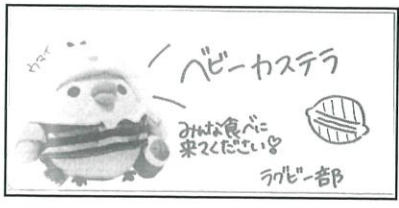 ウマイ
ベビーカステラ
みんな食べに
来てください♡
ラグビー部